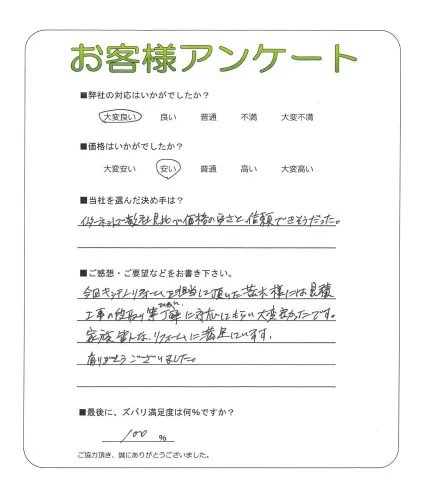 お客様アンケート
■弊社の対応はいかがでしたか？
大変良い 良い 普通 不満 大変不満
■価格はいかがでしたか？
大変安い 安い 普通 高い 大変高い
■当社を選んだ決め手は？
インターネットで数社見比べ価格の安さと、信頼できそうだった。
■ご感想・ご要望などをお書き下さい。
今回キッチンリフォームを担当して頂いた 様には見積
工事の段取り等 丁寧に対応してもらい大変良かったです。
家族皆んな、リフォームに満足しています。
ありがとうございました。
■最後に、ズバリ満足度は何%ですか？
100 %
ご協力頂き、誠にありがとうございました。